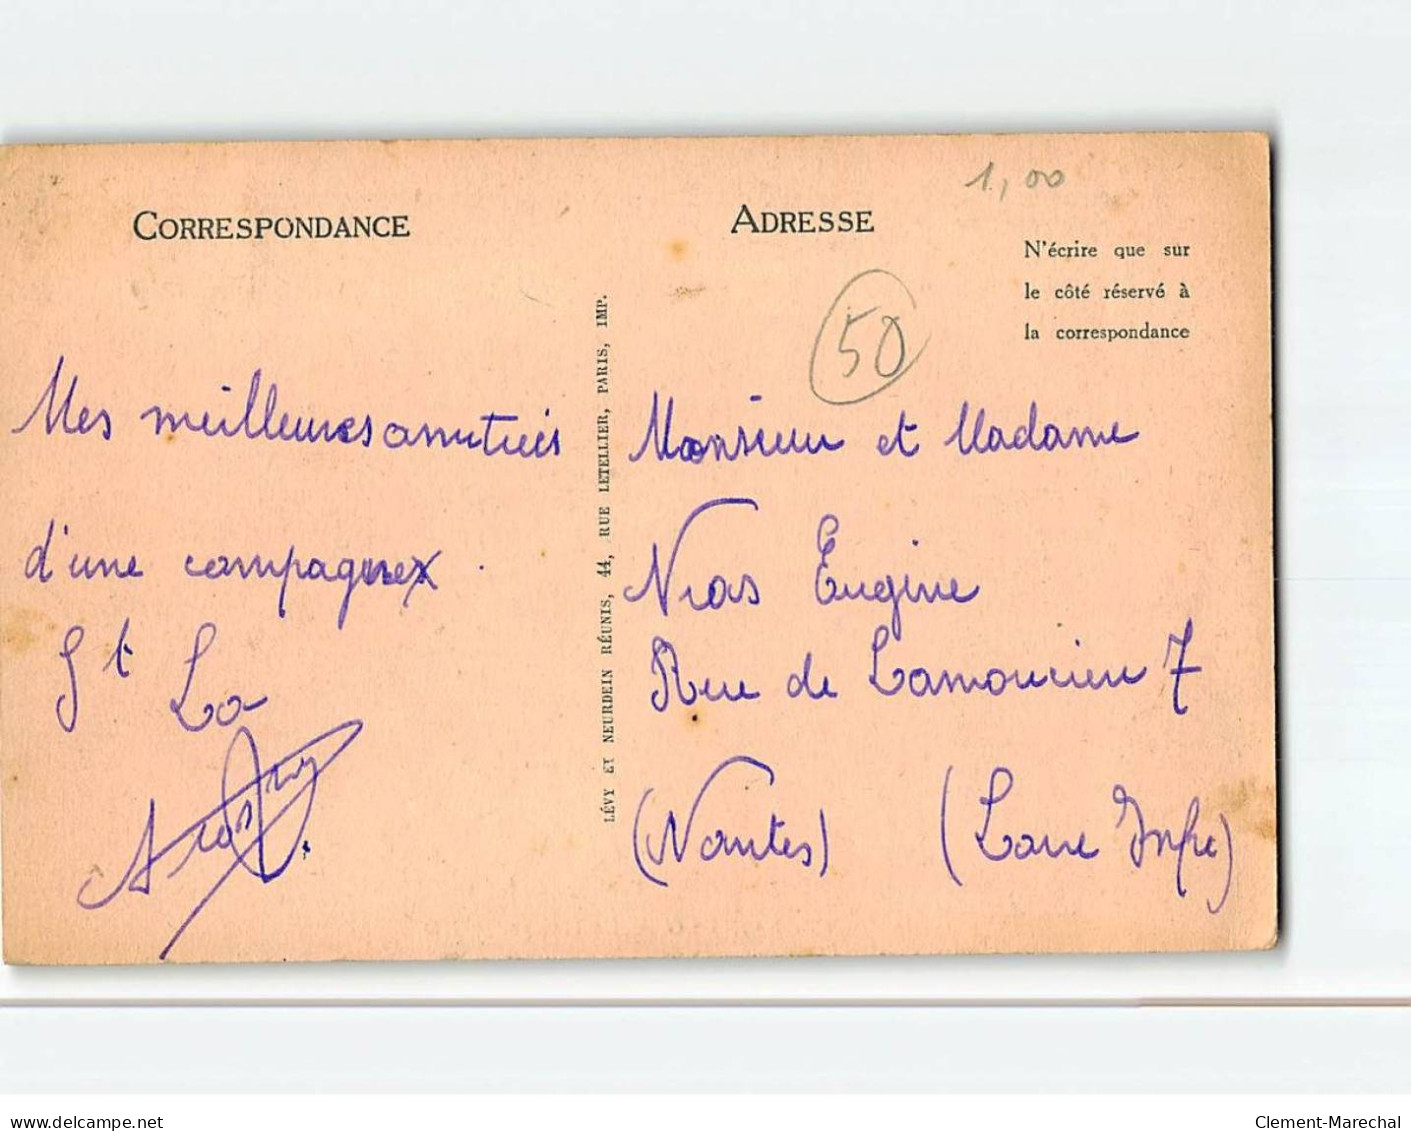 1,00
CORRESPONDANCE
ADRESSE
N'écrire que sur
le côté réservé à
la correspondance
50
Mes meilleures amitiés
d'une compagnie
St Lo
LÉVY ET NEURDEIN RÉUNIS, 44, RUE LETELLIER, PARIS, IMP.
Monsieur et Madame
Nias Eugène
Rue de Lamoricien 7
(Nantes) (Loire Infre)
delcampe.net
Clement-Marechal